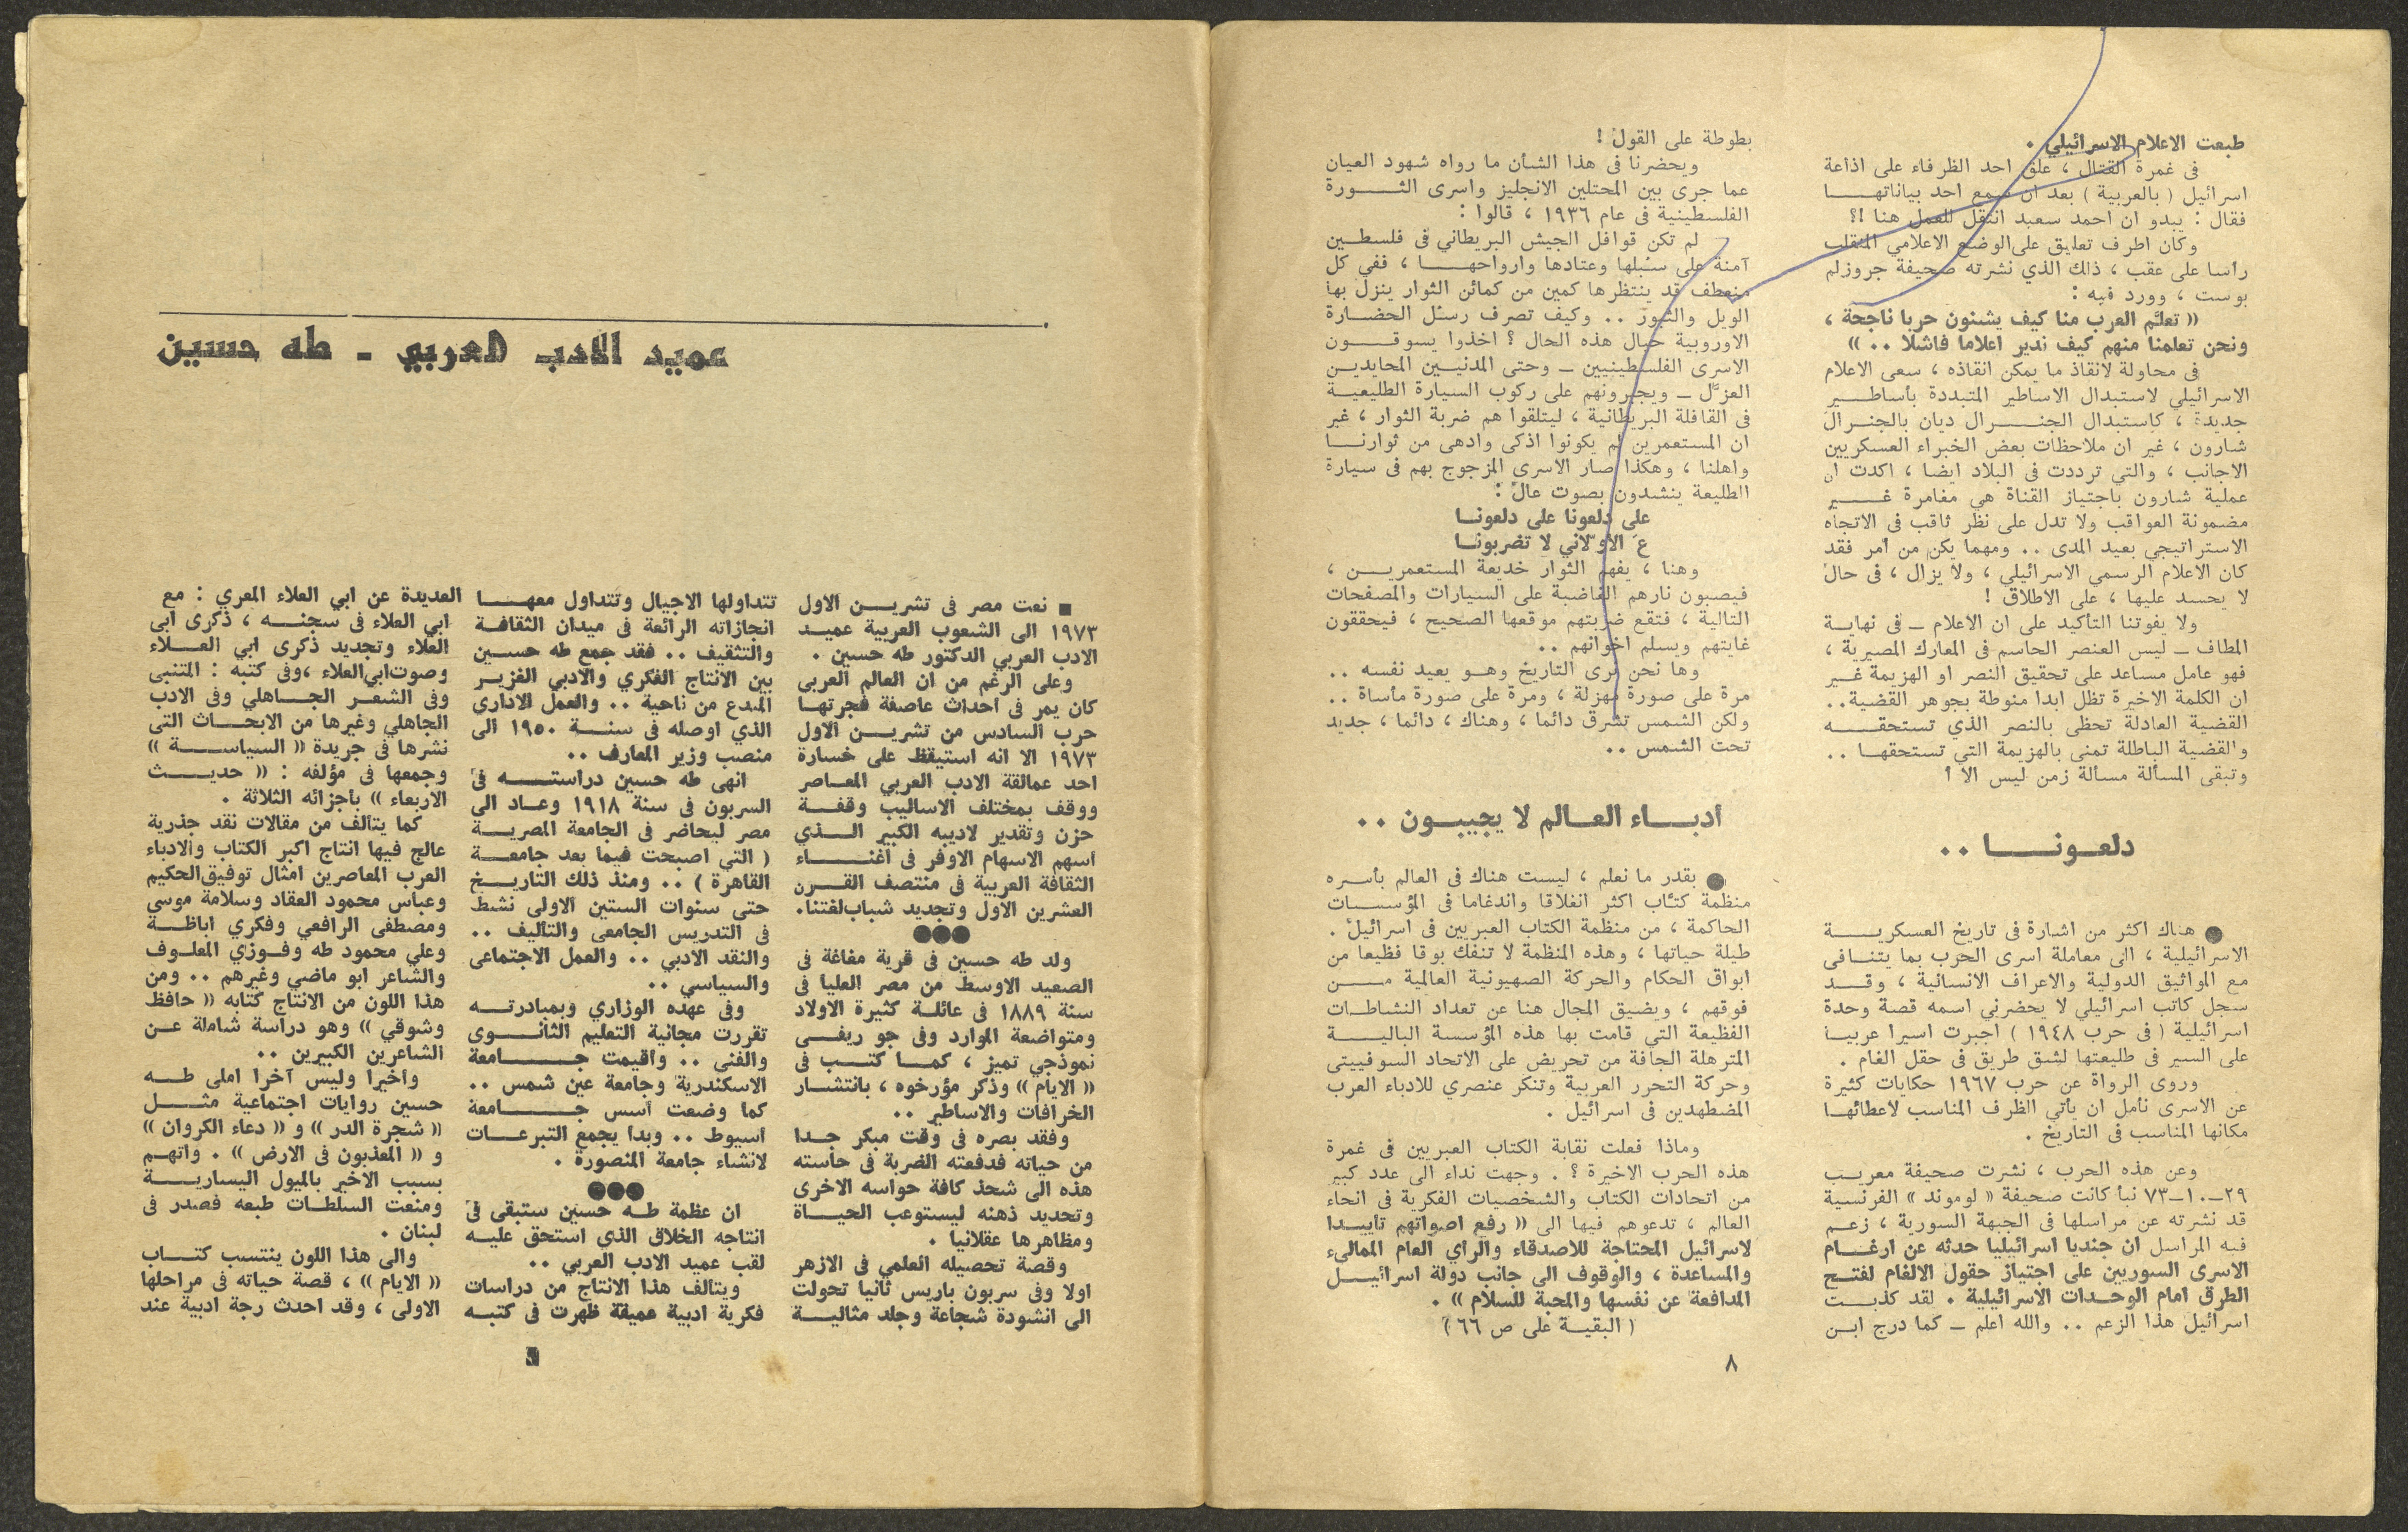 طبعت الاعلام الاسرائيلي .
في غمرة القتال ، علق احد الظرفاء على اذاعة
اسرائيل ( بالعربية ) بعد ان سمع احد بياناتهــا
فقال : يبدو ان احمد سعيد انتقل للعمل هنا !؟
وكان اطرف تعليق على الوضع الاعلامي المنقلب
رأسا على عقب ، ذلك الذي نشرته صحيفة جروزلم
بوست ، وورد فيه :
(( تعلّم العرب منا كيف يشنون حربا ناجحة ،
ونحن تعلمنا منهم كيف ندير اعلاما فاشلا .. ))
في محاولة لانقاذ ما يمكن انقاذه ، سعى الاعلام
الاسرائيلي لاستبدال الاساطير المتبددة بأساطــير
جديدة ، كاستبدال الجنــرال ديان بالجنرال
شارون ، غير ان ملاحظات بعض الخبراء العسكريين
الاجانب ، والتي ترددت في البلاد ايضا ، اكدت ان
عملية شارون باجتياز القناة هي مغامرة غــير
مضمونة العواقب ولا تدل على نظر ثاقب في الاتجاه
الاستراتيجي بعيد المدى .. ومهما يكن من أمر فقد
كان الاعلام الرسمي الاسرائيلي ، ولا يزال ، في حال
لا يحسد عليها ، على الاطلاق !
ولا يفوتنا التأكيد على ان الاعلام ــ في نهايــة
المطاف ــ ليس العنصر الحاسم في المعارك المصيرية ،
فهو عامل مساعد على تحقيق النصر او الهزيمة غــير
ان الكلمة الاخيرة تظل ابدا منوطة بجوهر القضية..
القضية العادلة تحظى بالنصر الذي تستحقــه
والقضية الباطلة تمنى بالهزيمة التي تستحقهــا ..
وتبقى المسألة مسألة زمن ليس الا !
دلعونــا ..
● هناك اكثر من اشارة في تاريخ العسكريــة
الاسرائيلية ، الى معاملة اسرى الحرب بما يتنــافى
مع المواثيق الدولية والاعراف الانسانية ، وقــد
سجل كاتب اسرائيلي لا يحضرني اسمه قصة وحدة
اسرائيلية ( في حرب ١٩٤٨ ) اجبرت اسيرا عربيــا
على السير في طليعتها لشق طريق في حقل الغام .
وروى الرواة عن حرب ١٩٦٧ حكايات كثيرة
عن الاسرى نأمل ان يأتي الظرف المناسب لاعطائهــا
مكانها المناسب في التاريخ .
وعن هذه الحرب ، نشرت صحيفة معريــب
٢٩ــ١٠ــ٧٣ نبأ كانت صحيفة « لوموند » الفرنسية
قد نشرته عن مراسلها في الجبهة السورية ، زعــم
فيه المراسل ان جنديا اسرائيليا حدثه عن ارغــام
الاسرى السوريين على اجتياز حقول الالغام لفتــح
الطرق امام الوحــدات الاسرائيلية . لقد كذبــت
اسرائيل هذا الزعم .. والله اعلم ــ كما درج ابــن
بطوطة على القول !
ويحضرنا في هذا الشأن ما رواه شهود العيان
عما جرى بين المحتلين الانجليز واسرى الثــورة
الفلسطينية في عام ١٩٣٦ ، قالوا :
لم تكن قوافل الجيش البريطاني في فلسطــين
آمنة على سبلها وعتادها وارواحهــا ، ففي كل
منعطف قد ينتظرها كمين من كمائن الثوار ينزل بها
الويل والثبور .. وكيف تصرف رسل الحضــارة
الاوروبية حيال هذه الحال ؟ اخذوا يسوقــون
الاسرى الفلسطينيين ــ وحتى المدنيــين المحايديــن
العزّل ــ ويجبرونهم على ركوب السيارة الطليعيــة
في القافلة البريطانية ، ليتلقوا هم ضربة الثوار ، غير
ان المستعمرين لم يكونوا اذكى وادهى من ثوارنــا
واهلنا ، وهكذا صار الاسرى المزجوج بهم في سيارة
الطليعة ينشدون بصوت عال :
على دلعونا على دلعونــا
عَ الاولاني لا تضربونــا
وهنا ، يفهم الثوار خديعة المستعمريــن ،
فيصبون نارهم الغاضبة على السيارات والمصفحات
التالية ، فتقع ضربتهم موقعها الصحيح ، فيحققون
غايتهم ويسلم اخوانهم ..
وها نحن نرى التاريخ وهــو يعيد نفسه ..
مرة على صورة مهزلة ، ومرة على صورة مأساة ..
ولكن الشمس تشرق دائما ، وهناك ، دائما ، جديد
تحت الشمس ..
أدبــاء العــالم لا يجيبــون ..
● بقدر ما نعلم ، ليست هناك في العالم بأسره
منظمة كتّاب اكثر انغلاقا واندغاما في المؤسســات
الحاكمة ، من منظمة الكتاب العبريين في اسرائيل .
طيلة حياتها ، وهذه المنظمة لا تنفك بوقا فظيعا من
ابواق الحكام والحركة الصهيونية العالمية مــن
فوقهم ، ويضيق المجال هنا عن تعداد النشاطــات
الفظيعة التي قامت بها هذه المؤسسة الباليــة
المترهلة الجافة من تحريض على الاتحاد السوفييتي
وحركة التحرر العربية وتنكر عنصري للادباء العرب
المضطهدين في اسرائيل .
وماذا فعلت نقابة الكتاب العبريين في غمرة
هذه الحرب الاخيرة ؟ . وجهت نداء الى عدد كبير
من اتحادات الكتاب والشخصيات الفكرية في انحاء
العالم ، تدعوهم فيها الى (( رفع اصواتهم تأييــدا
لاسرائيل المحتاجة للاصدقاء والرأي العام الممالىء
والمساعدة ، والوقوف الى جانب دولة اسرائيــل
المدافعة عن نفسها والمحبة للسلام )) .
( البقيــة على ص ٦٦ )
٨
عميد الادب العربي ـ طه حسين
■ نعت مصر في تشريــن الاول
١٩٧٣ الى الشعوب العربية عميــد
الادب العربي الدكتور طه حسين .
وعلى الرغم من ان العالم العربي
كان يمر في احداث عاصفة فجرتهــا
حرب السادس من تشريــن الاول
١٩٧٣ الا انه استيقظ على خسارة
احد عمالقة الادب العربي المعــاصر
ووقف بمختلف الاساليب وقفــة
حزن وتقدير لاديبه الكبير الــذي
أسهم الاسهام الاوفر في اغنــاء
الثقافة العربية في منتصف القــرن
العشرين الاول وتجديد شباب لغتنا.
●●●
ولد طه حسين في قرية مغاغة في
الصعيد الاوسط من مصر العليا في
سنة ١٨٨٩ في عائلــة كثيرة الاولاد
ومتواضعة الموارد وفي جو ريفــي
نموذجي تميز ، كمــا كتــب في
(( الايام )) وذكر مؤرخوه ، بانتشــار
الخرافات والاساطير ..
وفقد بصره في وقت مبكر جــدا
من حياته فدفعته الضربة في حاسته
هذه الى شحذ كافة حواسه الاخرى
وتحديد ذهنه ليستوعب الحيــاة
ومظاهرها عقلانيا .
وقصة تحصيله العلمي في الازهر
اولا وفي سربون باريس ثانيا تحولت
الى انشودة شجاعة وجلد مثاليــة
تتداولها الاجيال وتتداول معهــا
انجازاته الرائعة في ميدان الثقافــة
والتثقيف .. فقد جمع طه حســين
بين الانتاج الفكري والادبي الغزيــر
المبدع من ناحية .. والعمل الاداري
الذي اوصله في سنــة ١٩٥٠ الى
منصب وزير المعارف ..
انهى طه حسين دراستــه في
السربون في سنة ١٩١٨ وعــاد الى
مصر ليحاضر في الجامعة المصريــة
( التي اصبحت فيما بعد جامعــة
القاهرة ) .. ومنذ ذلك التاريــخ
حتى سنوات الستين الاولى نشط
في التدريس الجامعي والتأليف ..
والنقد الادبي .. والعمل الاجتماعي
والسياسي ..
وفي عهده الوزاري وبمبادرتــه
تقررت مجانية التعليم الثانــوي
والفني .. واقيمت جــامعة
الاسكندرية وجامعة عين شمس ..
كما وضعت أسس جــامعة
أسيوط .. وبدأ يجمع التبرعــات
لانشاء جامعة المنصورة .
●●●
ان عظمة طــه حسين ستبقى في
انتاجه الخلاق الذي استحق عليــه
لقب عميد الادب العربي ..
ويتألف هذا الانتاج من دراسات
فكرية ادبية عميقة ظهرت في كتبــه
العديدة عن ابي العلاء المعري : مع
ابي العلاء في سجنــه ، ذكرى ابي
العلاء وتجديد ذكرى ابي العــلاء
وصوت ابي العلاء ،وفي كتبه : المتنبي
وفي الشعــر الجــاهلي وفي الادب
الجاهلي وغيرها من الابحــاث التي
نشرها في جريدة (( السياســة ))
وجمعها في مؤلفه : (( حديــث
الاربعاء )) بأجزائه الثلاثة .
كما يتألف من مقالات نقد جذرية
عالج فيها انتاج اكبر الكتاب والادباء
العرب المعاصرين امثال توفيق الحكيم
وعباس محمود العقاد وسلامة موسى
ومصطفى الرافعي وفكري اباظــة
وعلي محمود طه وفــوزي المعلــوف
والشاعر ابو ماضي وغيرهم .. ومن
هذا اللون من الانتاج كتابه (( حافظ
وشوقي )) وهو دراسة شاملة عــن
الشاعرين الكبيرين ..
واخيرا وليس آخرا املى طــه
حسين روايات اجتماعية مثــل
(( شجرة الدر )) و (( دعاء الكروان ))
و (( المعذبون في الارض )) . واتهــم
بسبب الاخير بالميول اليساريــة
ومنعت السلطــات طبعه فصدر في
لبنان .
والى هذا اللون ينتسب كتــاب
(( الايام )) ، قصة حياته في مراحلها
الاولى ، وقد احدث رجة ادبية عند